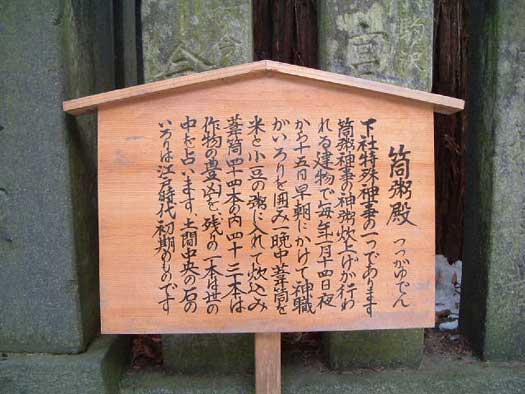 筒粥殿 つつがゆでん
下社特殊神事の一つであります
筒粥神事の神粥炊上げが行わ
れる建物で毎年一月十四日夜
から十五日早朝にかけて神職
がいろりを囲み一晩中葦筒を
米と小豆の粥に入れて炊込み
葦筒四十四本の内四十三本は
作物の豊凶を、残りの一本は世の
中を占います、土間中央の石の
いろりは江戸時代初期のものです